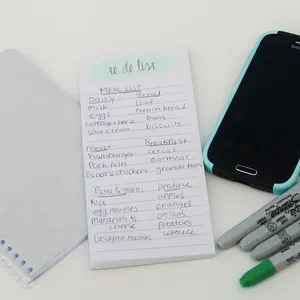 to do list
MEAL LIST
Dairy Bread
milk loaf
eggs french bread
cottage cheese buns
sour cream biscuits
meat Breakfast
hamburger cereal
Pork loin oatmeal
Boneless chicken granola bars
Pasta & grains produce
Rice apples
egg noodles oranges
macaroni & onions
cheese potatoes
Lasagna noodles lettuce
Sharpie